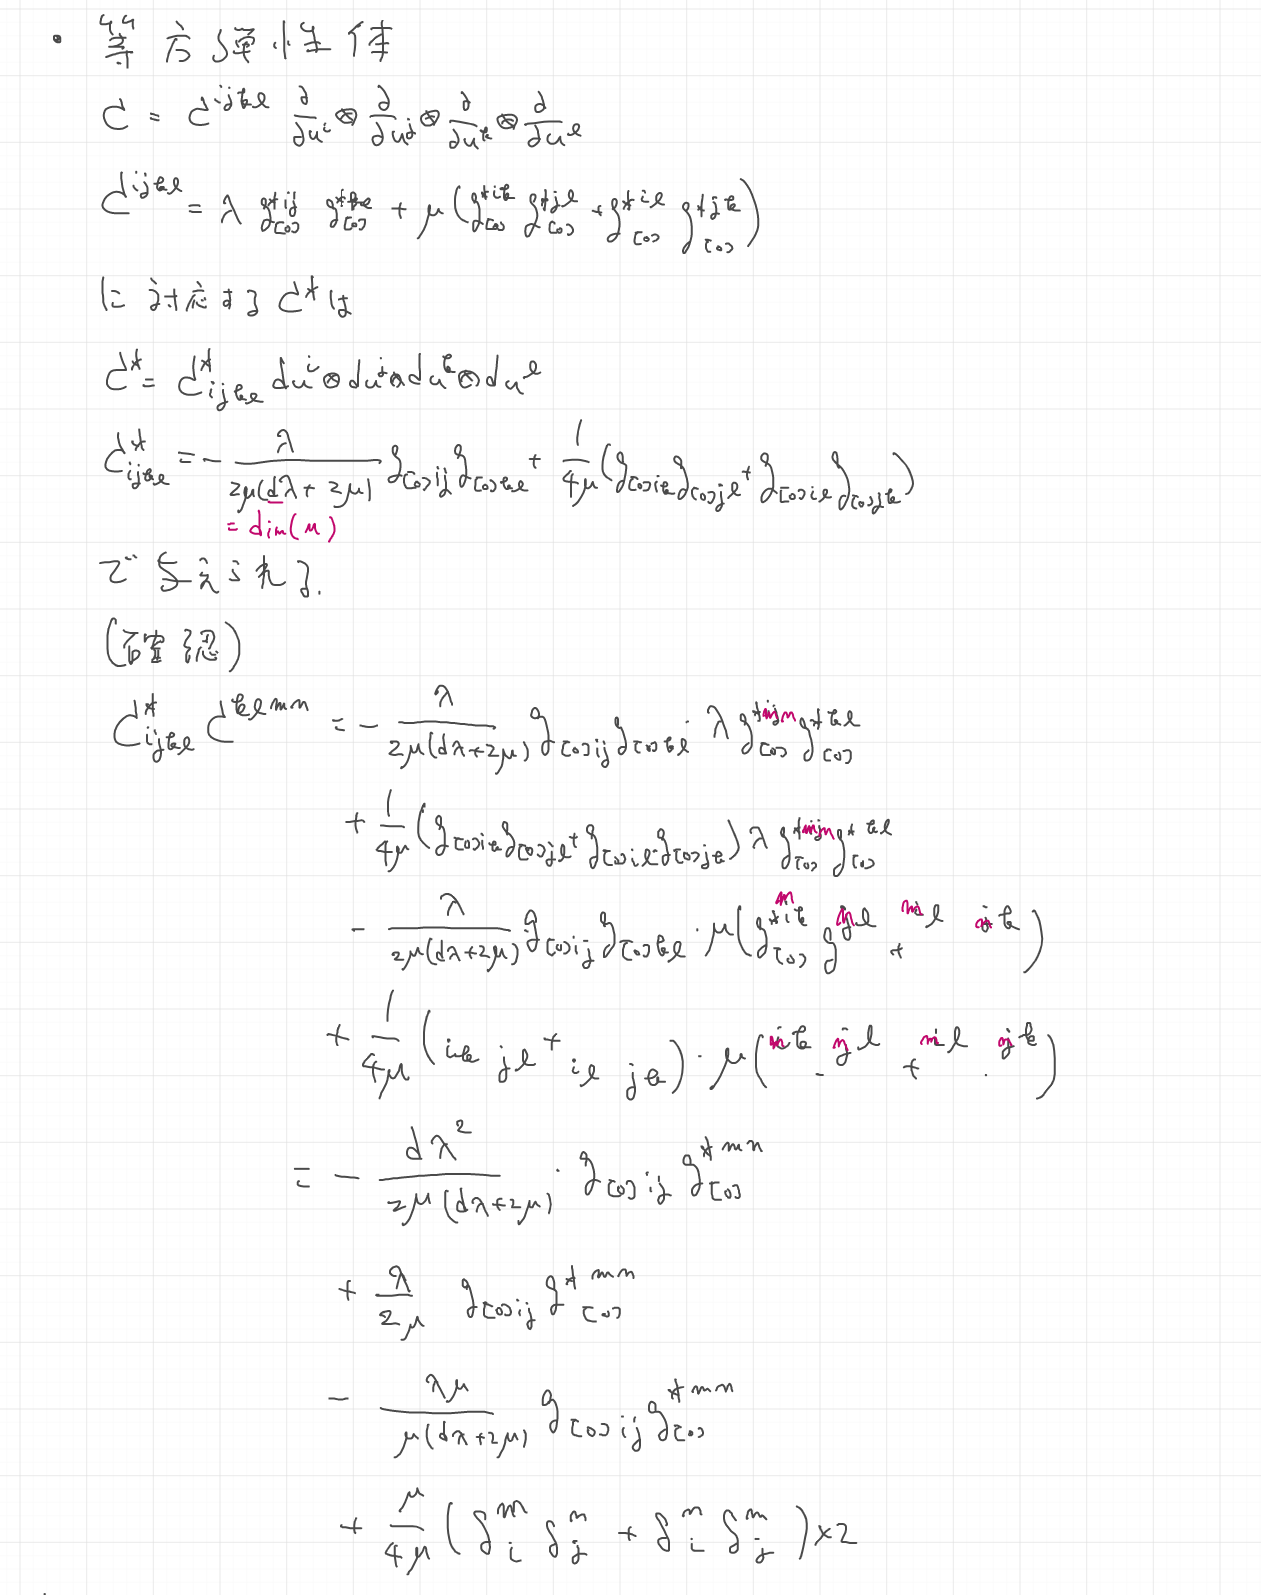 ・等方弾性体
C = C^{ijkl} ∂/∂u^i ⊗ ∂/∂u^j ⊗ ∂/∂u^k ⊗ ∂/∂u^l
C^{ijkl} = λ g^{*ij}_{[0]} g^{*kl}_{[0]} + μ (g^{*ik}_{[0]} g^{*jl}_{[0]} + g^{*il}_{[0]} g^{*jk}_{[0]})
に対応する C^* は
C^* = C^*_{ijkl} du^i ⊗ du^j ⊗ du^k ⊗ du^l
C^*_{ijkl} = - λ/(2μ(dλ+2μ)) g_{[0]ij} g_{[0]kl} + 1/(4μ) (g_{[0]ik} g_{[0]jl} + g_{[0]il} g_{[0]jk})
= dim(M)
で与えられる.
(確認)
C^*_{ijkl} C^{klmn} = - λ/(2μ(dλ+2μ)) g_{[0]ij} g_{[0]kl} · λ g^{*mn}_{[0]} g^{*kl}_{[0]}
+ 1/(4μ) (g_{[0]ik} g_{[0]jl} + g_{[0]il} g_{[0]jk}) λ g^{*mn}_{[0]} g^{*kl}_{[0]}
- λ/(2μ(dλ+2μ)) g_{[0]ij} g_{[0]kl} · μ (g^{*mk}_{[0]} g^{nl} + ml nk)
+ 1/(4μ) (ik jl + il jk) · μ (mk nl + ml nk)
= - dλ^2/(2μ(dλ+2μ)) · g_{[0]ij} g^{*mn}_{[0]}
+ λ/(2μ) g_{[0]ij} g^{*mn}_{[0]}
- λμ/(μ(dλ+2μ)) g_{[0]ij} g^{*mn}_{[0]}
+ μ/(4μ) (δ^m_i δ^n_j + δ^n_i δ^m_j) ×2